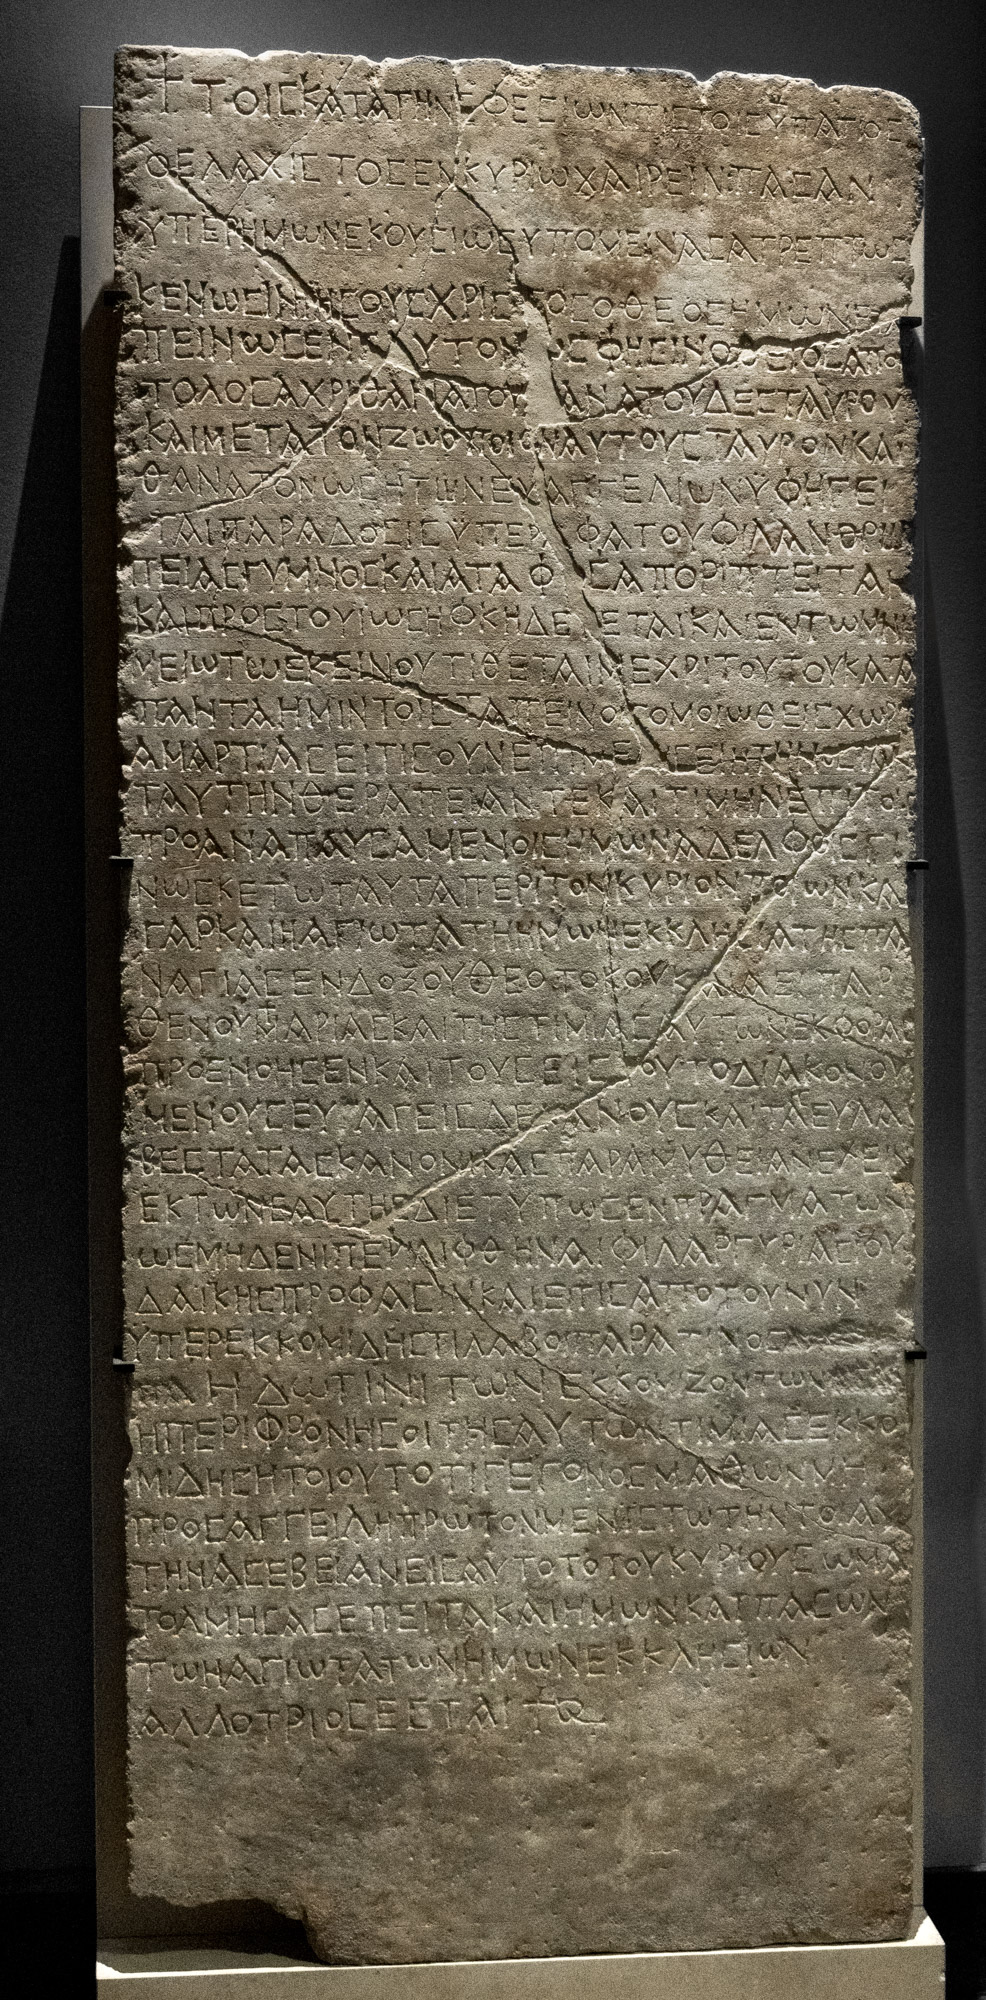 † ΤΟΙϹ ΚΑΤΑ ΤΗΝ ΕΦΕϹΙΩΝ ΠΙϹΤΟΙϹ ΥΠΑΤΙΟϹ
Ο ΕΛΑΧΙϹΤΟϹ ΕΝ ΚΥΡΙΩ ΧΑΙΡΕΙΝ ΠΑϹΑΝ
ΥΠΕΡ ΗΜΩΝ ΕΚΟΥϹΙΩϹ ΥΠΟΜΕΙΝΑϹ ΑΤΡΕΠΤΩϹ
ΚΕΝΩϹΙΝ ΙΗϹΟΥϹ ΧΡΙϹΤΟϹ Ο ΘΕΟϹ ΗΜΩΝ Ε
ΠΕΙΝΩϹΕΝ ΥΤΟΝ ΦΗϹΙΝ Ο ΘΕΙΟϹ ΑΠΟ
ΤΟΛΟϹ ΑΧΡΙ ΘΑΝΑΤΟΥ ΑΝΑΤΟΥ ΔΕ ϹΤΑΥΡΟΥ
ΚΑΙ ΜΕΤΑ ΤΟΝ ΖΩΟΠΟΙΟΝ ΑΥΤΟΥ ϹΤΑΥΡΟΝ ΚΑΙ
ΘΑΝΑΤΟΝ ΩϹ Η ΤΩΝ ΕΥΑΓΓΕΛΙΩΝ ΥΦΗΓΕΙ
ΤΑΙ ΠΑΡΑΔΟϹΙϹ ΥΠΕΡ ΦΑΤΟΥ ΦΙΛΑΝΘΡΩ
ΠΕΙΑϹ ΓΥΜΝΟϹ ΚΑΙ ΑΤΑΦΟϹ ΑΠΟΡΙΠΤΕΤΑΙ
ΚΑΙ ΠΡΟϹ ΤΟΥ ΙΩϹΗΦ ΚΗΔΕΥΕΤΑΙ ΚΑΙ ΕΝ ΤΩ ΜΝΗ
ΜΕΙΩ ΤΩ ΕΚΕΙΝΟΥ ΤΙΘΕΤΑΙ ΜΕΧΡΙ ΤΟΥΤΟΥ ΚΑΤΑ
ΠΑΝΤΑ ΗΜΙΝ ΤΟΙϹ ΤΑΠΕΙΝΟΙϹ ΟΜΟΙΩΘΕΙϹ ΧΩΡΙϹ
ΑΜΑΡΤΙΑϹ ΕΙ ΤΙϹ ΟΥΝ
ΤΑΥΤΗΝ ΘΕΡΑΠΕΙΑΝ ΤΕ ΚΑΙ ΤΙΜΗΝ ΕΠΙ ΤΟΙϹ
ΠΡΟΑΝΑΠΑΥϹΑΜΕΝΟΙϹ ΗΜΩΝ ΑΔΕΛΦΟΙϹ ΓΙ
ΝΩϹΚΕΤΩ ΤΑΥΤΑ ΠΕΡΙ ΤΟΝ ΚΥΡΙΟΝ ΠΟΙΩΝ ΚΑΙ
ΓΑΡ ΚΑΙ Η ΑΓΙΩΤΑΤΗ ΗΜΩΝ ΕΚΚΛΗϹΙΑ ΤΗϹ ΠΑ
ΝΑΓΙΑϹ ΕΝΔΟΞΟΥ ΘΕΟΤΟΚΟΥ ΚΑΙ ΑΕΙΠΑΡ
ΘΕΝΟΥ ΜΑΡΙΑϹ ΚΑΙ ΤΗϹ ΤΙΜΙΑϹ ΑΥΤΩΝ ΕΚΦΟΡΑϹ
ΠΡΟΕΝΟΗϹΕΝ ΚΑΙ ΤΟΥϹ ΕΙϹ ΤΟΥΤΟ ΔΙΑΚΟΝΟΥ
ΜΕΝΟΥϹ ΕΥΑΓΕΙϹ ΔΕΚΑΝΟΥϹ ΚΑΙ ΤΑϹ ΕΥΛΑ
ΒΕϹΤΑΤΑϹ ΚΑΝΟΝΙΚΑϹ ΠΑΡΑΜΥΘΕΙΑΝ ΕΧΕΙΝ
ΕΚ ΤΩΝ ΕΑΥΤΗϹ ΔΙΕΤΥΠΩϹΕΝ ΠΡΑΓΜΑΤΩΝ
ΩϹ ΜΗΔΕΝΙ ΠΕΡΙΛΙΦΘΗΝΑΙ ΦΙΛΑΡΓΥΡΙΑϹ ΙΟΥ
ΔΑΙΚΗϹ ΠΡΟΦΑϹΙΝ ΚΑΙ ΕΙ ΤΙϹ ΑΠΟ ΤΟΥ ΝΥΝ
ΥΠΕΡ ΕΚΚΟΜΙΔΗϹ ΤΙ ΛΑΒΟΙ ΠΑΡΑ ΤΙΝΟϹ
Η ΔΩ ΤΙΝΙ ΤΩΝ ΕΚΚΟΜΙΖΟΝΤΩΝ
Η ΠΕΡΙΦΡΟΝΗϹΟΙ ΤΗϹ ΑΥΤΩΝ ΤΙΜΙΑϹ ΕΚΚΟ
ΜΙΔΗϹ Η ΤΟΙΟΥΤΟ ΤΙ ΓΕΓΟΝΟϹ ΜΑΘΩΝ ΜΗ
ΠΡΟϹΑΓΓΕΙΛΗ ΠΡΩΤΟΝ ΜΕΝ ΙϹΤΩ ΤΗΝ ΤΟΙΑΥ
ΤΗΝ ΑϹΕΒΕΙΑΝ ΕΙϹ ΑΥΤΟ ΤΟ ΤΟΥ ΚΥΡΙΟΥ ϹΩΜΑ
ΤΟΛΜΗϹΑϹ ΕΠΕΙΤΑ ΚΑΙ ΗΜΩΝ ΚΑΙ ΠΑϹΩΝ
ΤΩΝ ΑΓΙΩΤΑΤΩΝ ΗΜΩΝ ΕΚΚΛΗϹΙΩΝ
ΑΛΛΟΤΡΙΟϹ ΕϹΤΑΙ †